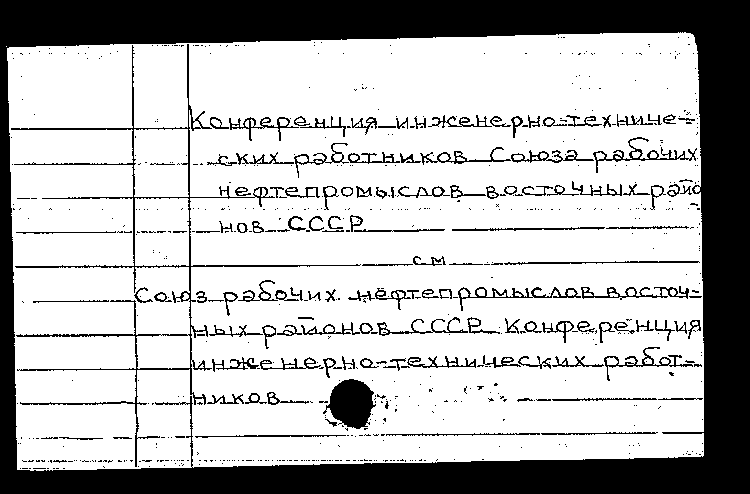 Конференция инженерно-техниче-
ских работников Союза рабочих
нефтепромыслов восточных райо
нов СССР
см
Союз рабочих нефтепромыслов восточ-
ных районов СССР Конференция
инженерно-технических работ-
ников